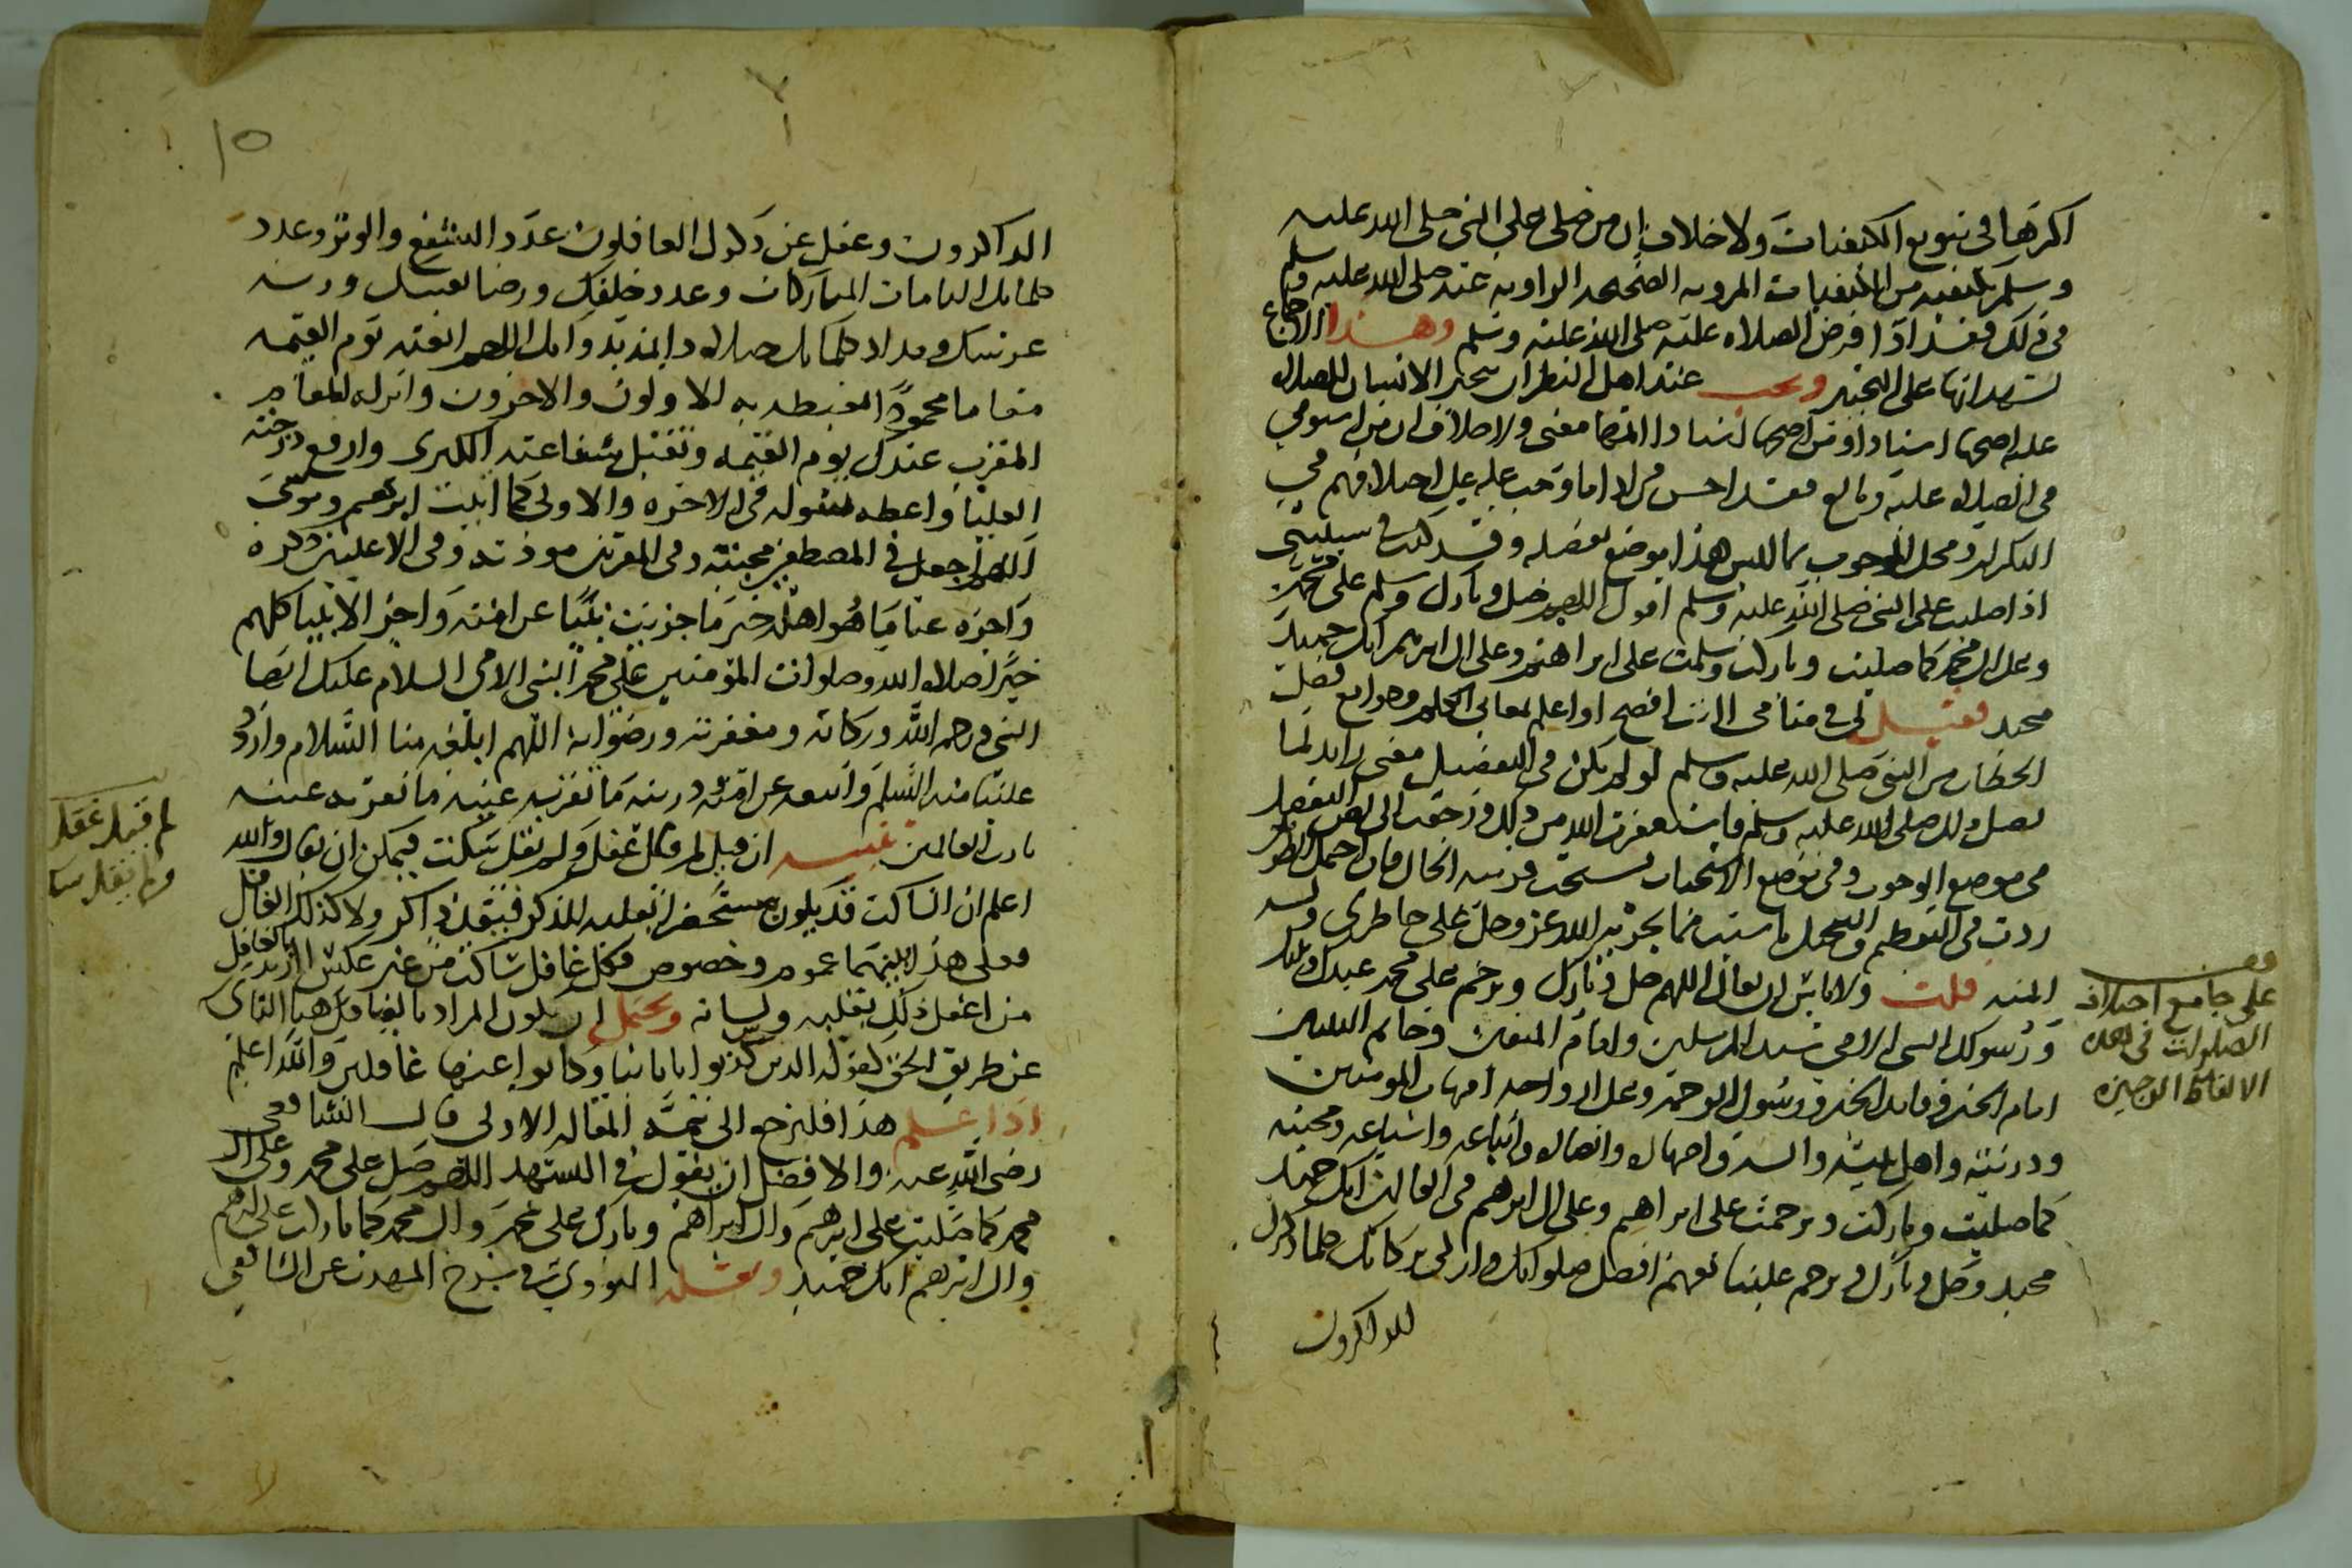 اكثرها في تنويع الكيفيات ولا خلاف ان من صلى على النبي صلى الله عليه
وسلم بكيفية من الكيفيات المروية الصحيحة الواردة عنه صلى الله عليه وسلم
في ذلك فقد ادا فرض الصلاة عليه صلى الله عليه وسلم وهذا الاجماع
انها على التخيير ويجب عند اهل النظر ان يتخير الانسان للصلاة
عليه اصحها اسنادا ومن اصحها اسنادا اتمها معنى ولا خلاف ان من
في الصلاة عليه وبالغ فقد احسن في ادا ما وجب عليه على اختلافهم في
التكرار ومحل الوجوب مما ليس هذا موضع تفصيله وقد كنت في
اذا صليت على النبي صلى الله عليه وسلم اقول اللهم صل وبارك وسلم على محمد
وعلى ال محمد كما صليت وباركت وسلمت على ابراهيم وعلى ال ابرهيم انك حميد
مجيد فقيل لي في منامي اانت افصح او اعلم بمعاني الكلم وجوامع فصل
الخطاب من النبي صلى الله عليه وسلم لو لم يكن في التفصيل معنى زايد لما
فصل ذلك صلى الله عليه وسلم فاستغفرت الله من ذلك ورجعت الى نص التفضيل
في موضع الوجوب وفي موضع الاستحباب
زدت في التعظيم والتبجيل ما شيت مما يجريه الله عز وجل على خاطري وله
المنة قلت ولا باس ان يقال اللهم صل وبارك وترحم على محمد عبدك ونبيك
ورسولك النبي الامي سيد المرسلين وامام المتقين وخاتم النبيين
امام الخير وقايد الخير ورسول الرحمة وعلى ازواجه امهات المومنين
وذريته واهل بيته واله واصهاره وانصاره واتباعه واشياعه ومحبيه
كما صليت وباركت وترحمت على ابراهيم وعلى ال ابرهيم في العالمين انك حميد
مجيد وصل وبارك وترحم علينا معهم افضل صلواتك وازكى بركاتك كلما ذكرك
الذاكرون
قف
على جامع اختلاف
الصلوات في هذه
الالفاظ الوجيزة
١٥
الذاكرون وغفل عن ذكرك الغافلون عدد الشفع والوتر وعدد
كلماتك التامات المباركات وعدد خلقك ورضا نفسك وزنة
عرشك ومداد كلماتك صلاة دايمة بدوامك اللهم ابعثه يوم القيمة
مقاما محمودا يغبطه به الاولون والاخرون وانزله المقام
المقرب عندك يوم القيمة وتقبل شفاعته الكبرى وارفع درجته
العليا واعطه سوله في الاخرة والاولى كما اتيت ابرهيم وموسى
اللهم اجعل في المصطفين محبته وفي المقربين مودته وفي الاعلين ذكره
واجزه عنا ما هو اهله خير ما جزيت نبيا عن امته واجز الانبيا كلهم
خيرا صلاة الله وصلوات المؤمنين على محمد النبي الامي السلام عليك ايها
النبي ورحمة الله وبركاته ومغفرته ورضوانه اللهم ابلغه منا السلام واردد
علينا منه السلم واتبعه من امته وذريته ما تقر به عينه
يارب العالمين تنبيه ان قيل لم قال غفل ولم يقل سكت فيمكن ان يقال والله
اعلم ان الساكت قد يكون مستحضرا بقلبه للذكر فيبقى ذاكرا ولا كذلك الغافل
فعلى هذا بينهما عموم وخصوص فكل غافل ساكت من غير عكس اذ يراد بالغافل
من اغفل ذلك بقلبه ولسانه ويحتمل ان يكون المراد بالغافل هنا
عن طريق الحق كقوله الذين كذبوا باياتنا وكانوا عنها غافلين والله اعلم
اذا علم هذا فلنرجع الى تتمة المقالة الاولى قال الشافعي
رضي الله عنه والافضل ان يقول في التشهد اللهم صل على محمد وعلى ال
محمد كما صليت على ابرهيم وال ابراهيم وبارك على محمد وال محمد كما باركت على ابرهيم
وال ابرهيم انك حميد ونقله النووي في شرح المهذب عن الشافعي
لم قيل غفل
ولم يقل سكت